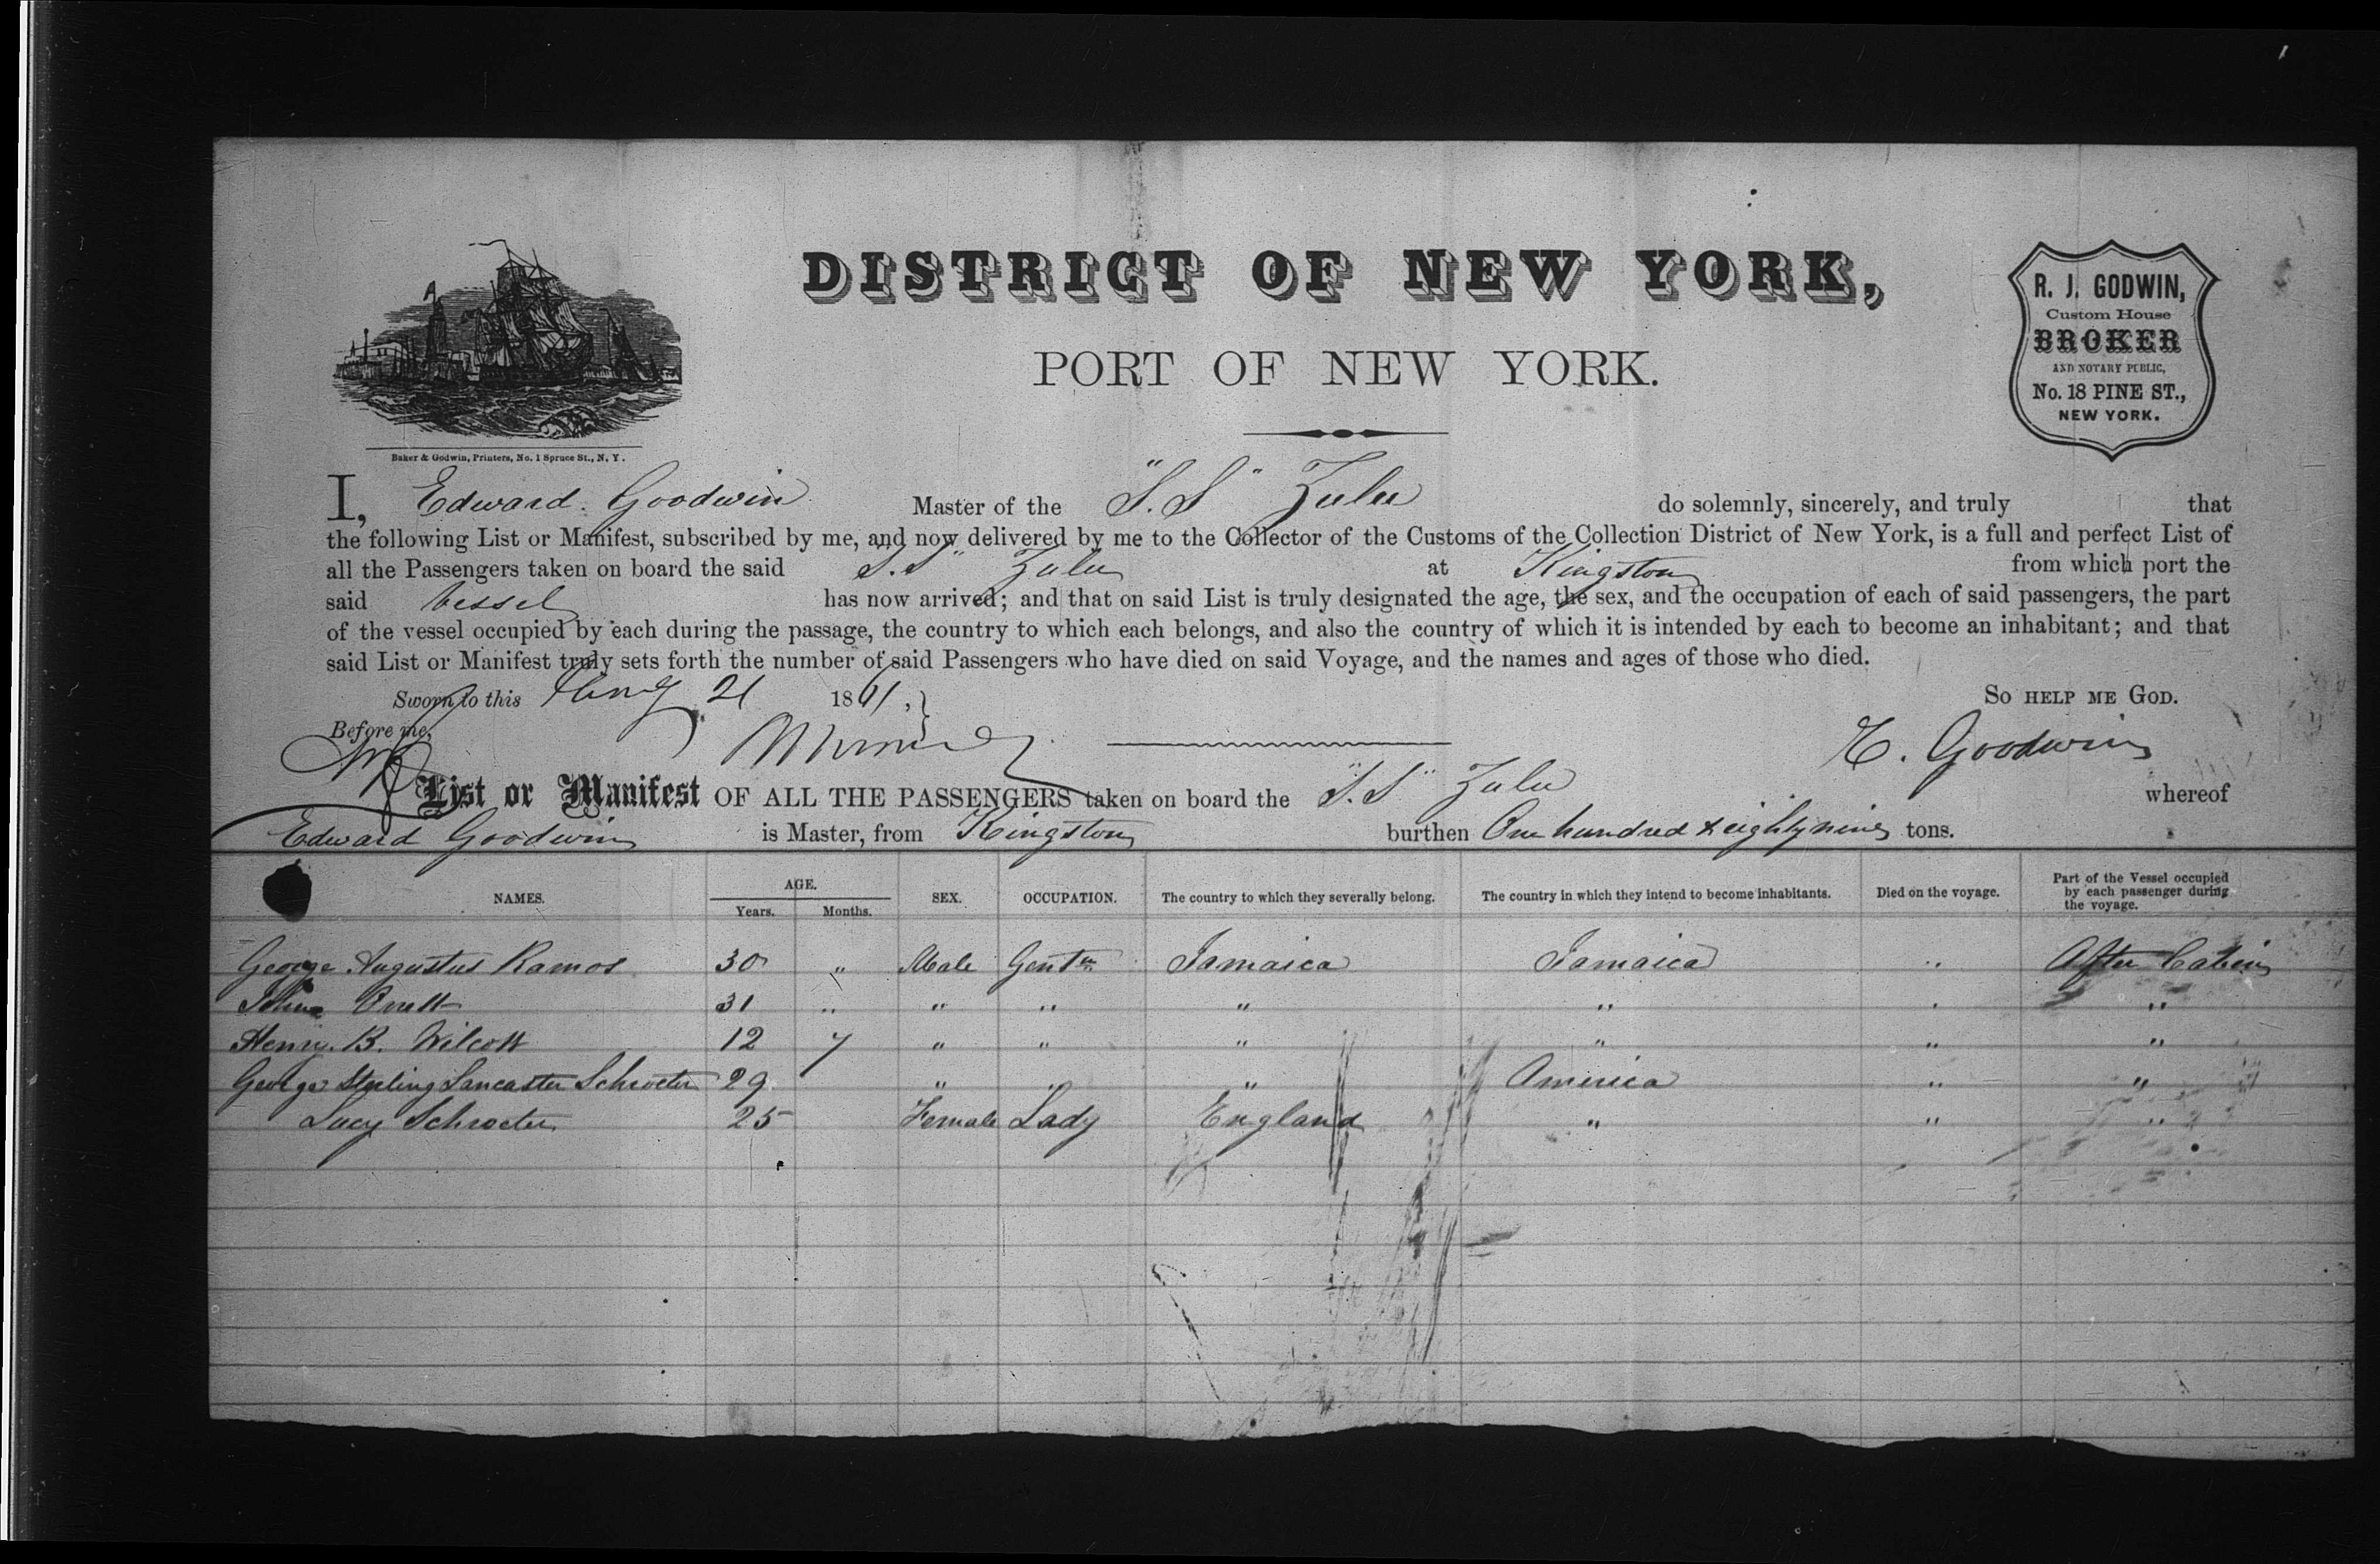 DISTRICT OF NEW YORK,
PORT OF NEW YORK.
R. J. GODWIN,
Custom House
BROKER
AND NOTARY PUBLIC,
No. 18 PINE ST.,
NEW YORK.
Baker & Godwin, Printers, No. 1 Spruce St., N. Y.
I, Edward Goodwin Master of the "S.S" Zulu do solemnly, sincerely, and truly that
the following List or Manifest, subscribed by me, and now delivered by me to the Collector of the Customs of the Collection District of New York, is a full and perfect List of
all the Passengers taken on board the said "S.S" Zulu at Kingston from which port the
said Vessel has now arrived; and that on said List is truly designated the age, the sex, and the occupation of each of said passengers, the part
of the vessel occupied by each during the passage, the country to which each belongs, and also the country of which it is intended by each to become an inhabitant; and that
said List or Manifest truly sets forth the number of said Passengers who have died on said Voyage, and the names and ages of those who died.
Sworn to this Aug 21 1861, So HELP ME GOD.
Before me, E. Goodwin
List or Manifest OF ALL THE PASSENGERS taken on board the "S.S" Zulu whereof
Edward Goodwin is Master, from Kingston burthen One hundred & eighty nine tons.
NAMES. AGE. Years. Months. SEX. OCCUPATION. The country to which they severally belong. The country in which they intend to become inhabitants. Died on the voyage. Part of the Vessel occupied by each passenger during the voyage.
George Augustus Ramos 30 " Male Gentn Jamaica Jamaica " After Cabin
31 " " " " " " "
Henry. B. Wilcott 12 7 " " " " " "
George Sterling Lancaster Schroeter 29 " " " America " "
Lucy Schroeter 25 Female Lady England " " "